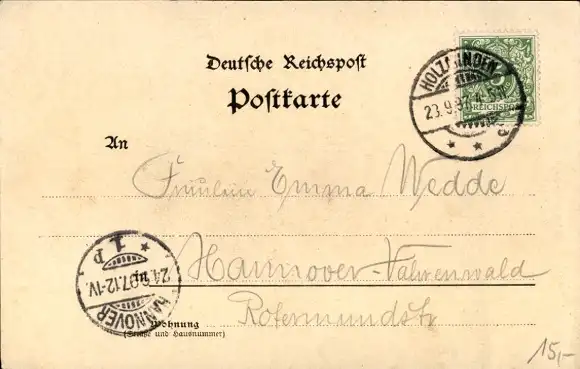 Deutsche Reichspost
Postkarte
HOLZMINDEN
23.9.97
5
REICHSPOST
An
Fräulein Emma Wedde
in
Hannover-Vahrenwald
Rotermundstr
1. P
24.9.97.12-1V
HANNOVER
Wohnung
(Straße und Hausnummer)
15,-